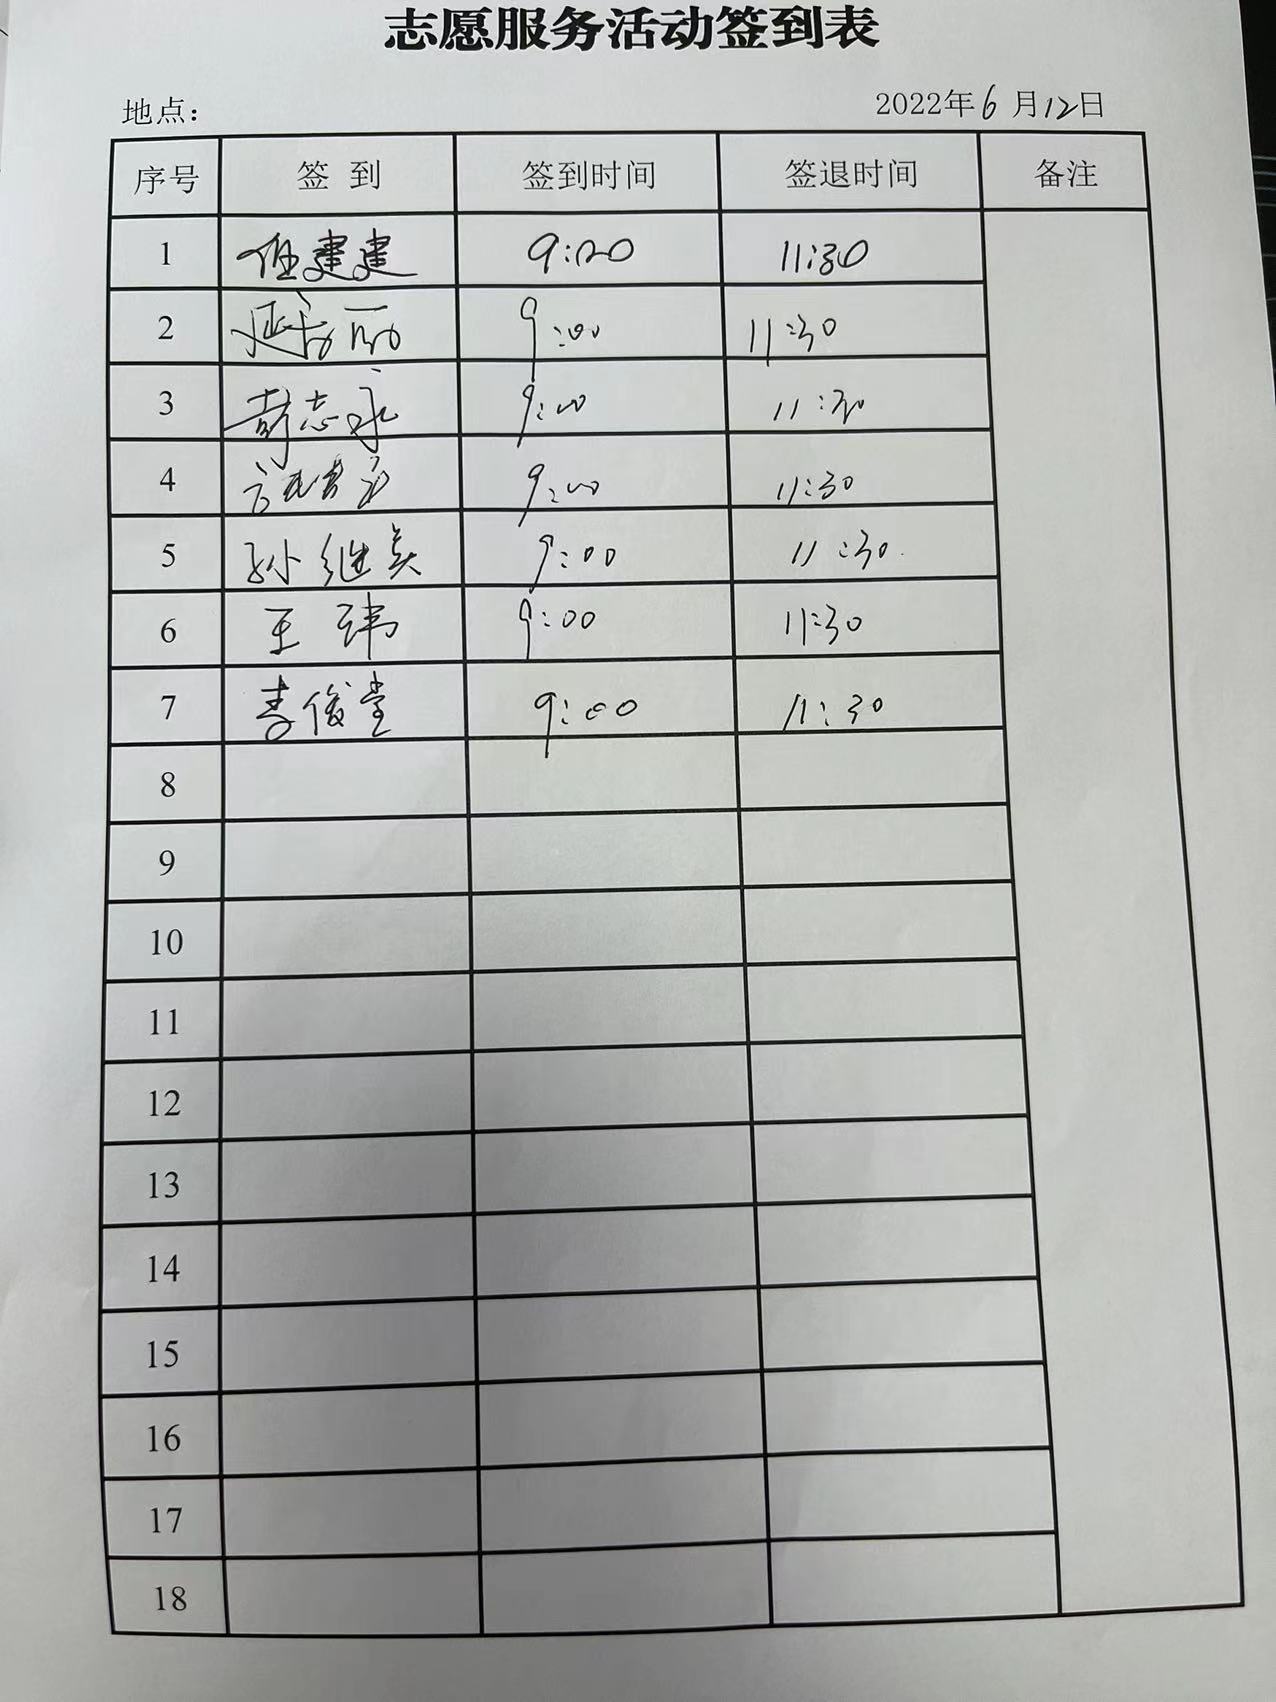 志愿服务活动签到表
地点: 2022年6月12日
序号 签到 签到时间 签退时间 备注
1 任建建 9:00 11:30
2 9:00 11:30
3 彭志永 9:00 11:30
4 9:00 11:30
5 孙继英 9:00 11:30
6 王玮 9:00 11:30
7 李俊堂 9:00 11:30
8
9
10
11
12
13
14
15
16
17
18